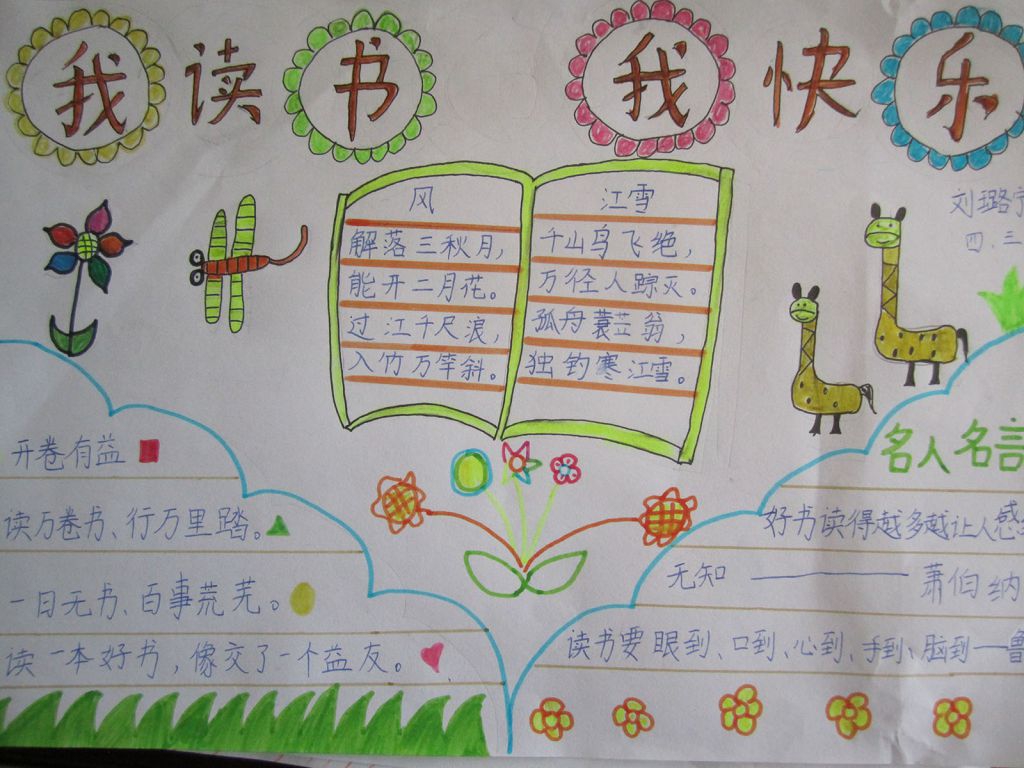 我读书 我快乐
刘璐宁
四、三
风
解落三秋月，
能开二月花。
过江千尺浪，
入竹万竿斜。
江雪
千山鸟飞绝，
万径人踪灭。
孤舟蓑笠翁，
独钓寒江雪。
开卷有益
读万卷书、行万里踏。
一日无书、百事荒芜。
读一本好书，像交了一个益友。
名人名言
好书读得越多越让人感
无知 ——— 萧伯纳
读书要眼到、口到、心到、手到、脑到—鲁